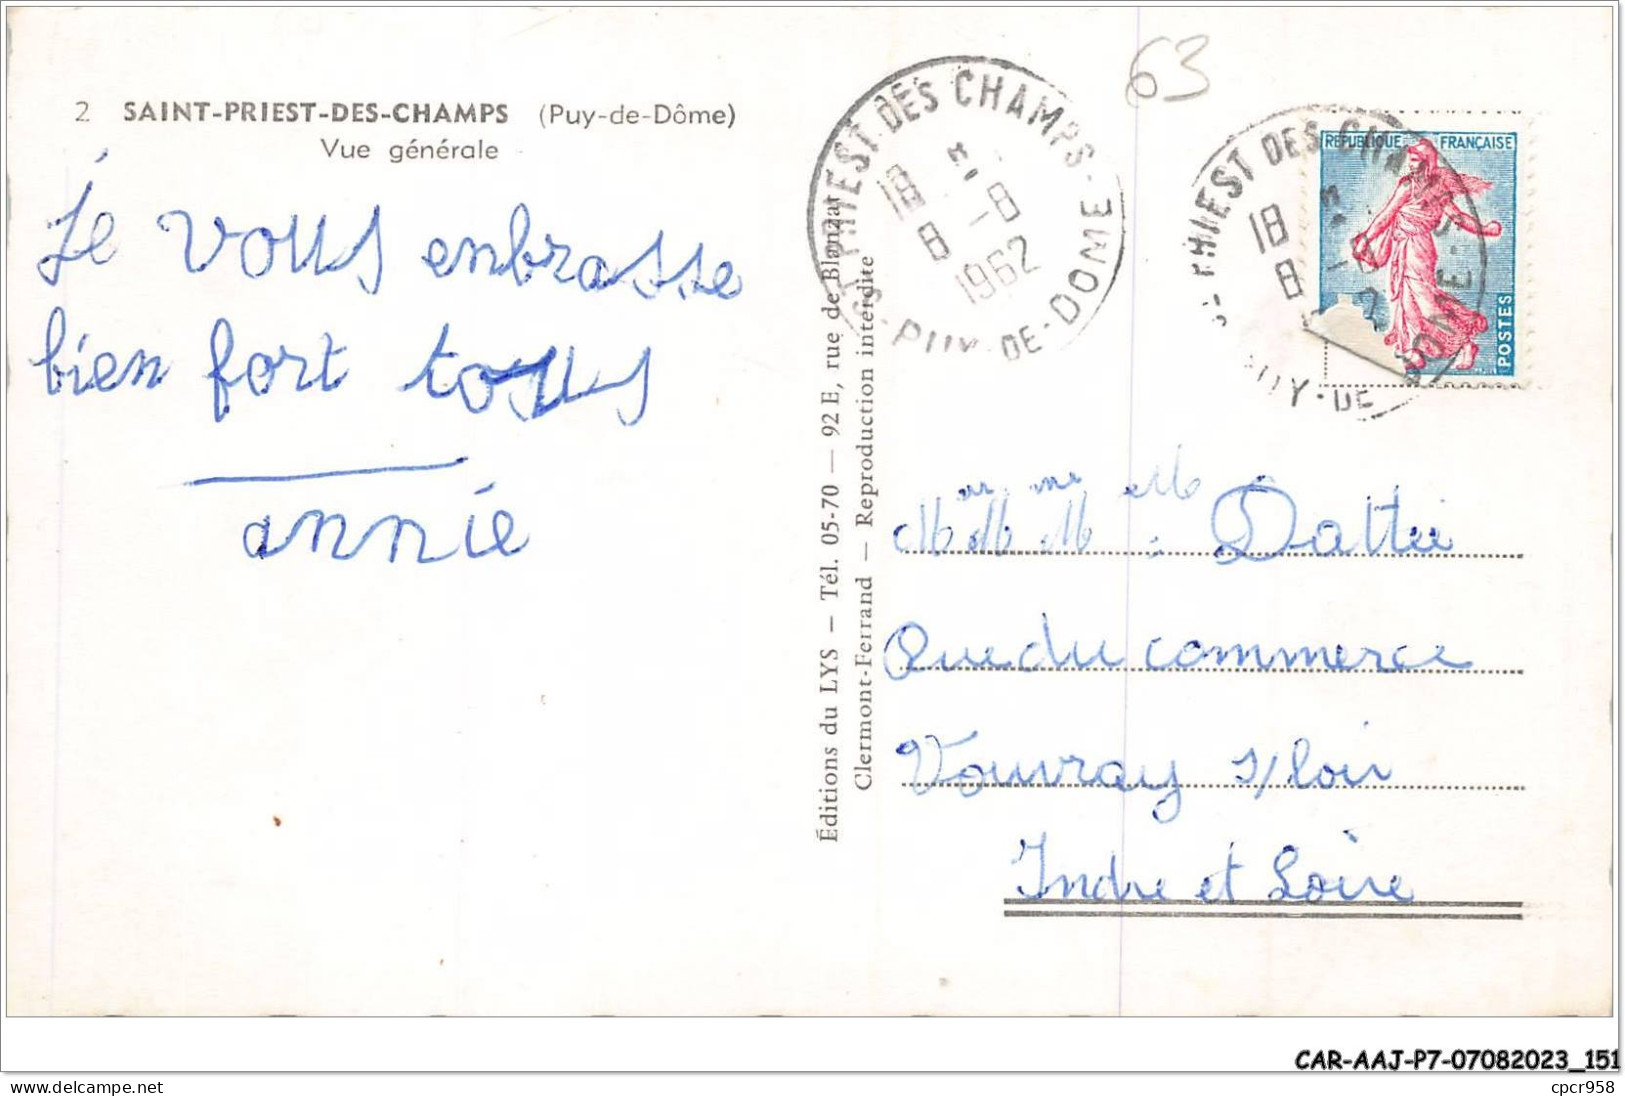 2 SAINT-PRIEST-DES-CHAMPS (Puy-de-Dôme)
Vue générale
Je vous enbrasse
bien fort tous
annie
Éditions du LYS — Tél. 05-70 — 92 E, rue de Blanzat
Clermont-Ferrand — Reproduction interdite
ST PRIEST-DES CHAMPS-
PUY-DE-DOME
18 H
8 -8
1962
63
ST PRIEST DES CHAMPS-
PUY-DE-DOME
18
8 -8
REPUBLIQUE FRANÇAISE
POSTES
Dattée
Rue du commerce
Vouvray s/loir
Indre et Loire
CAR-AAJ-P7-07082023_151
delcampe.net
cpcr958